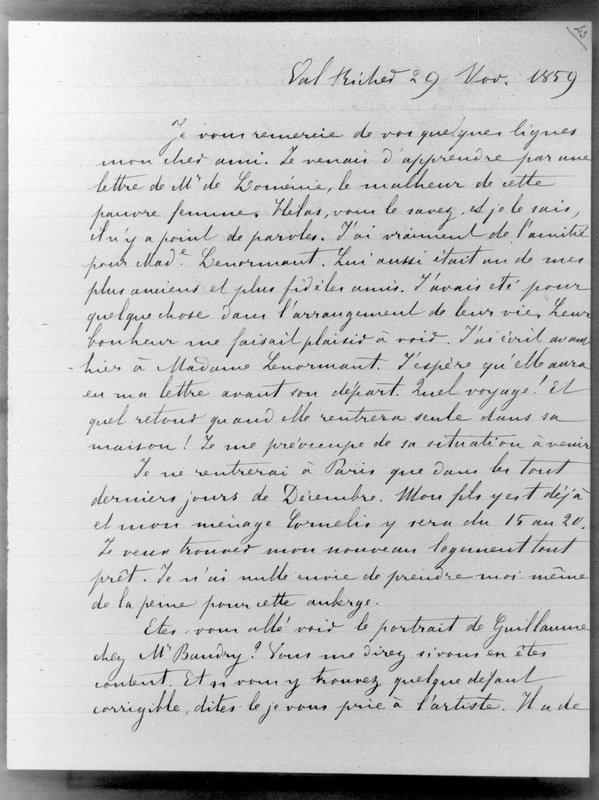 43
Val Richer 29 Nov. 1859
Je vous remercie de vos quelques lignes
mon cher ami. Je venais d'apprendre par une
lettre de Mr de Loménie, le malheur de cette
pauvre femme. Hélas, vous le savez, et je le sais,
il n'y a point de paroles. J'ai vraiment de l'amitié
pour Made Lenormant. Lui aussi était un de mes
plus anciens et plus fidèles amis. J'avais été pour
quelque chose dans l'arrangement de leur vie. Leur
bonheur me faisait plaisir à voir. J'ai écrit avant
-hier à Madame Lenormant. J'espère qu'elle aura
eu ma lettre avant son départ. Quel voyage! Et
quel retour quand elle rentrera seule dans sa
maison! Je me préoccupe de sa situation à venir
Je ne rentrerai à Paris que dans les tout
derniers jours de Décembre. Mon fils y est déjà
et mon ménage Cornelis y sera du 15 au 20.
Je veux trouver mon nouveau logement tout
prêt. Je n'ai nulle envie de prendre moi-même
de la peine pour cette auberge.
Etes-vous allé voir le portrait de Guillaume
chez Mr Baudry? Vous me direz si vous en êtes
content. Et si vous y trouvez quelque defaut
corrigible, dites-le je vous prie à l'artiste. Il a de